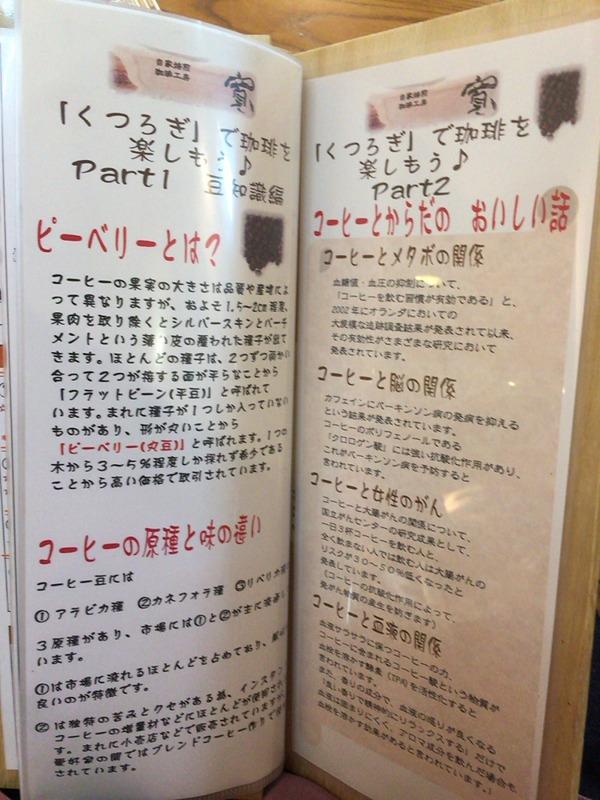 自家焙煎
珈琲工房
寛
「くつろぎ」で珈琲を
楽しもう♪
Part1 豆知識編
ピーベリーとは?
コーヒーの果実の大きさは品種や産地によ
って異なりますが、およそ1.5〜2cm程度、
果肉を取り除くとシルバースキンとパーチ
メントという薄い皮の覆われた種子が出て
きます。ほとんどの種子は、2つずつ向かい
合って2つが接する面が平らなことから
「フラットビーン(平豆)」と呼ばれて
います。まれに種子が1つしか入っていない
ものがあり、形が丸いことから
「ピーベリー(丸豆)」と呼ばれます。1つの
木から3〜5%程度しか採れず希少である
ことから高い価格で取引されています。
コーヒーの原種と味の違い
コーヒー豆には
① アラビカ種 ②カネフォラ種 ③リベリカ種
3原種があり、市場には①と②が主に流通し
います。
①は市場に流れるほとんどを占めており、
良いのが特徴です。
②は独特の苦みとクセがある為、インスタン
コーヒーの増量材などにほとんどが使用され
す。まれに小売店などで販売されていますが、
愛好家の間ではブレンドコーヒー作りで
されています。
自家焙煎
珈琲工房
寛
「くつろぎ」で珈琲を
楽しもう♪
Part2
コーヒーとからだの おいしい話
コーヒーとメタボの関係
血糖値・血圧の抑制について、
「コーヒーを飲む習慣が有効である」と、
2002年にオランダにおいての
大規模な追跡調査結果が発表されて以来、
その有効性がさまざまな研究において
発表されています。
コーヒーと脳の関係
カフェインにパーキンソン病の発病を抑える
という結果が発表されています。
コーヒーのポリフェノールである
「クロロゲン酸」には強い抗酸化作用があり、
これがパーキンソン病を予防すると
言われています。
コーヒーと女性のがん
コーヒーと大腸がんの関係について、
国立がんセンターの研究成果として、
一日3杯コーヒーを飲む人と、
全く飲まない人では飲む人は大腸がんの
リスクが30〜50%低くなったと
発表しています。
(コーヒーの抗酸化作用によって、
発がん物質の産生を防ぎます)
コーヒーと血液の関係
血液サラサラに保つコーヒーの力、
コーヒーに含まれるコーヒー酸という物質が
血栓を溶かす酵素(TPA)を活性化すると
言われています。
また、香りの成分で、血液の巡りが良くなる
「良い香りで精神的にリラックスする」だけで
血液は固まりにくく、アロマ成分を飲んだ場合も
血栓を溶かす効果があると言われています。